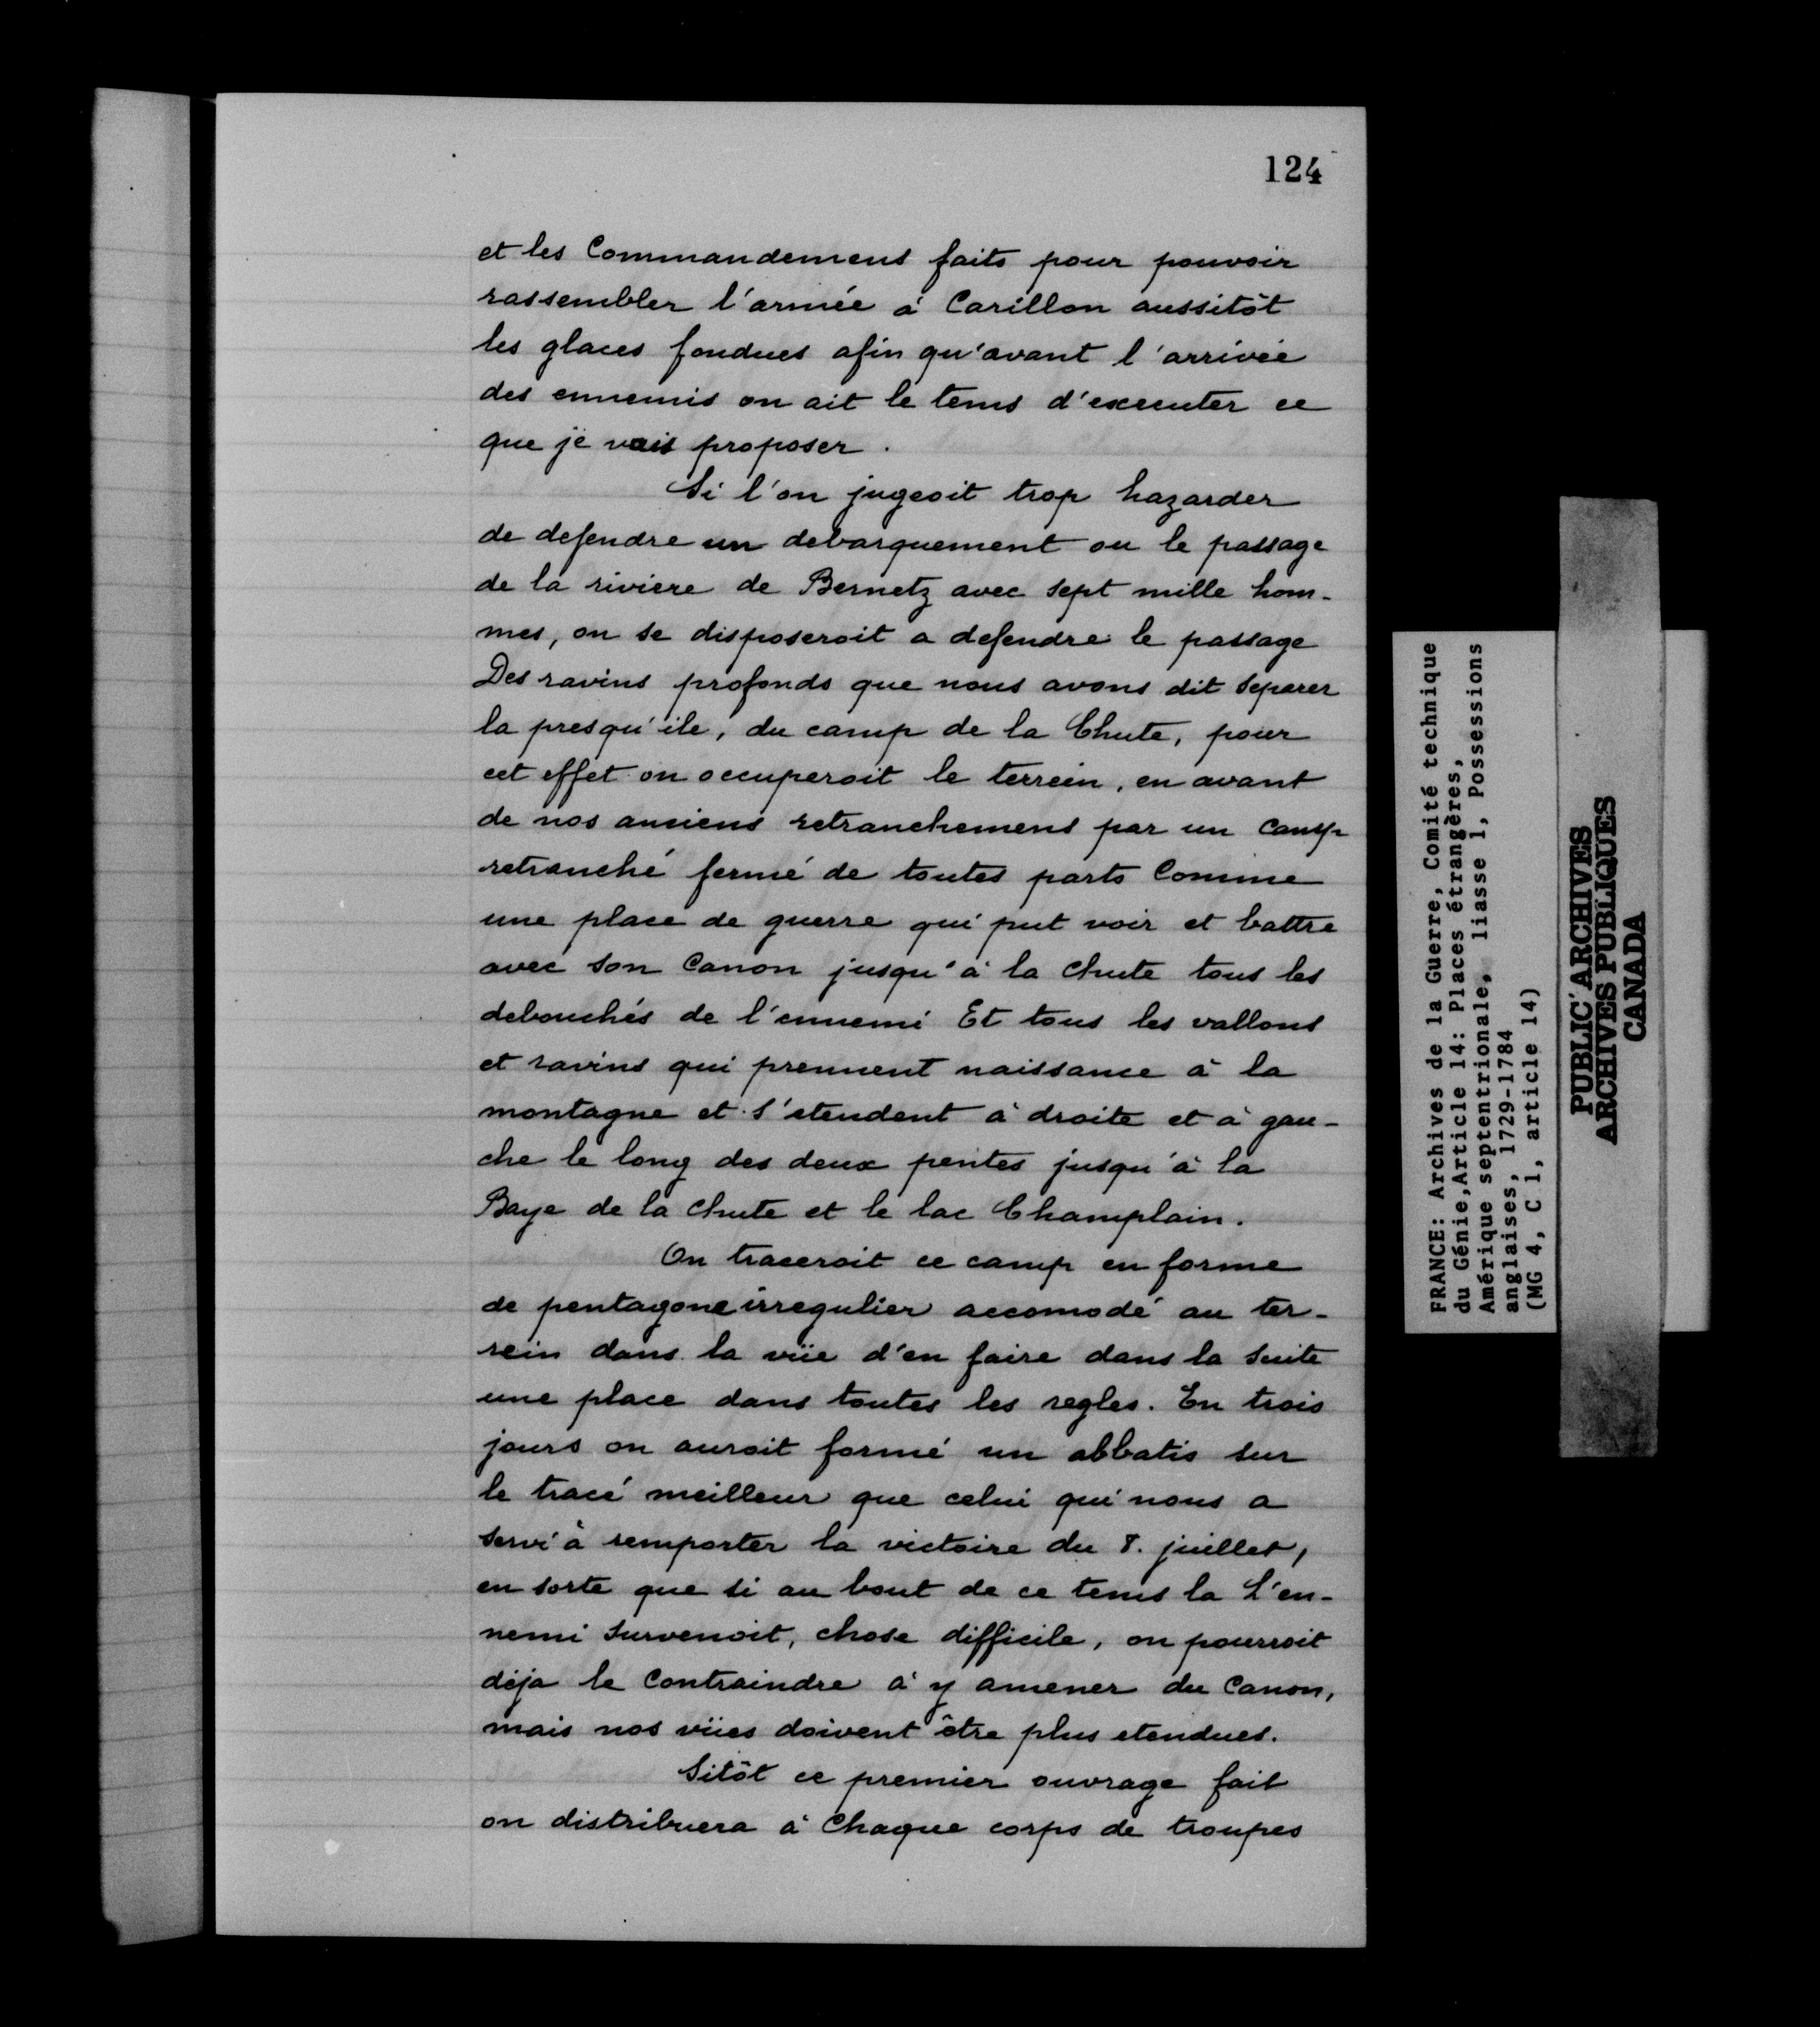 124
et les Commandemens faits pour pouvoir
rassembler l'armée à Carillon aussitôt
les glaces fondues afin qu'avant l'arrivée
des ennemis on ait le tems d'executer ce
que je vais proposer.
Si l'on jugeoit trop hazarder
de defendre un debarquement ou le passage
de la riviere de Bernetz avec sept mille hom-
mes, on se disposeroit a defendre le passage
Des ravins profonds que nous avons dit separer
la presqu'ile, du camp de la Chute, pour
cet effet on occuperoit le terrein, en avant
de nos anciens retranchemens par un Camp
retranché fermé de toutes parts Comme
une place de guerre qui put voir et battre
avec son Canon jusqu'à la chute tous les
debouchés de l'ennemi Et tous les vallons
et ravins qui prennent naissance à la
montagne et s'etendent à droite et à gau-
che le long des deux pentes jusqu'à la
Baye de la chute et le lac Champlain.
On traceroit ce camp en forme
de pentagone irregulier accomodé au ter-
rein dans la vüe d'en faire dans la suite
une place dans toutes les regles. En trois
jours on auroit formé un abbatis sur
le tracé meilleur que celui qui nous a
servi à remporter la victoire du 8. juillet,
en sorte que si au bout de ce tems la L'en-
nemi survenoit, chose difficile, on pourroit
déja le Contraindre à y amener du Canon,
mais nos vües doivent être plus etendues.
Sitôt ce premier ouvrage fait
on distribuera à Chaque corps de troupes
FRANCE: Archives de la Guerre, Comité technique
du Génie,Article 14: Places étrangères,
Amérique septentrionale, liasse 1, Possessions
anglaises, 1729-1784
(MG 4, C 1, article 14)
PUBLIC ARCHIVES
ARCHIVES PUBLIQUES
CANADA